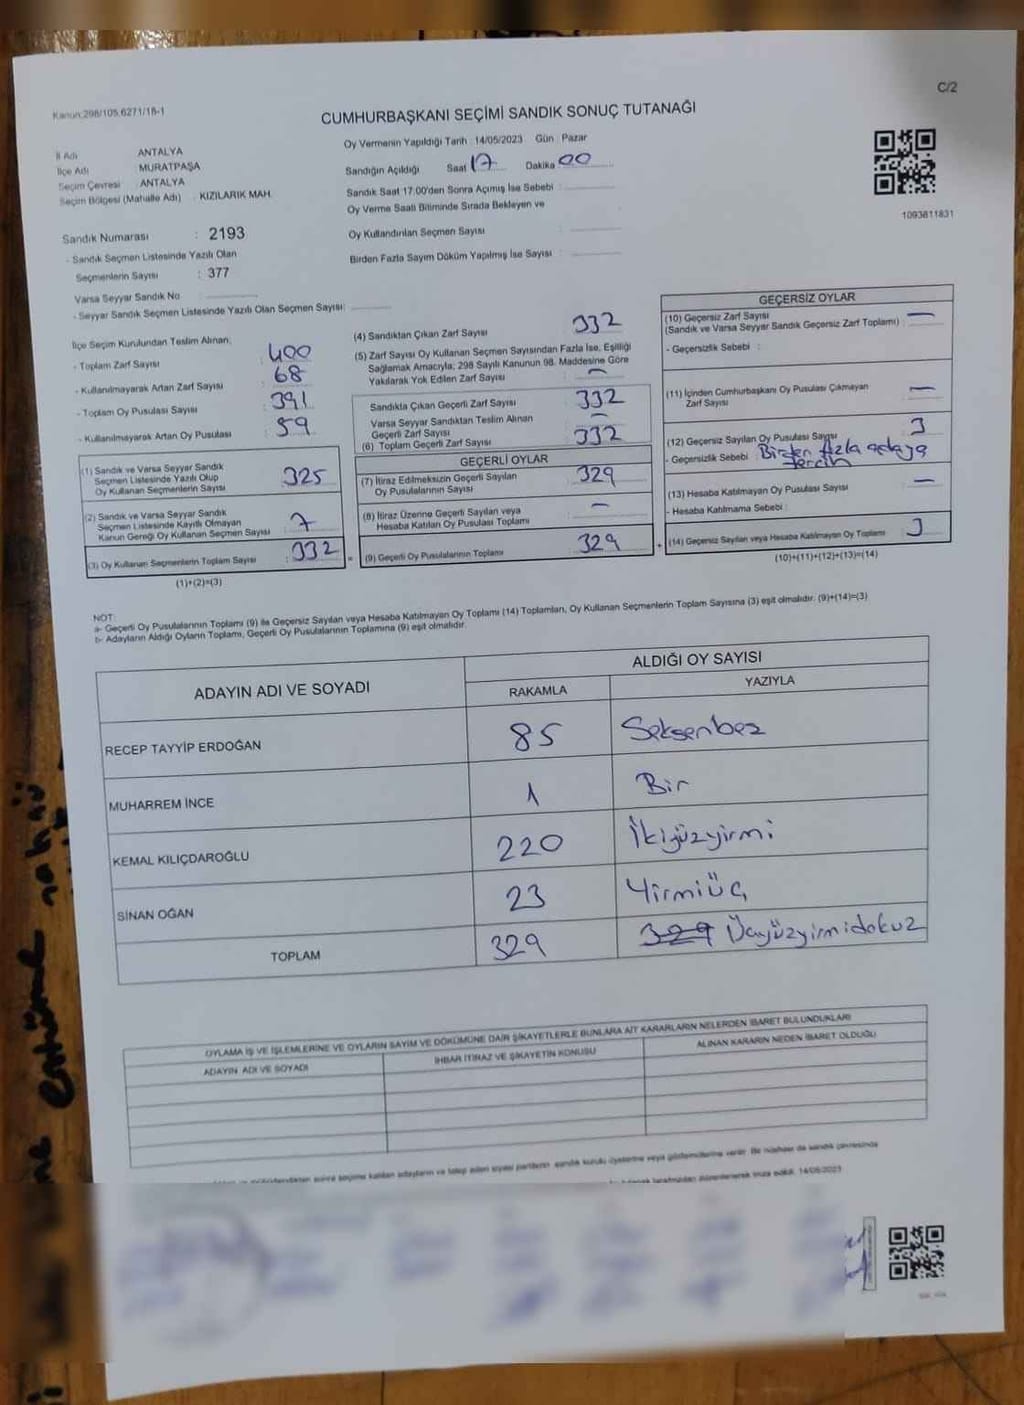 Kanun:298/105,6271/18-1
C/2
CUMHURBAŞKANI SEÇİMİ SANDIK SONUÇ TUTANAĞI
İl Adı ANTALYA
İlçe Adı MURATPAŞA
Seçim Çevresi : ANTALYA
Seçim Bölgesi (Mahalle Adı) : KIZILARIK MAH.
Oy Vermenin Yapıldığı Tarih : 14/05/2023 Gün : Pazar
Sandığın Açıldığı Saat 17 Dakika 00
Sandık Saat 17.00'den Sonra Açımış İse Sebebi :
Oy Verme Saati Bitiminde Sırada Bekleyen ve
Oy Kullandırılan Seçmen Sayısı
Birden Fazla Sayım Döküm Yapılmış İse Sayısı :
1093811831
Sandık Numarası : 2193
- Sandık Seçmen Listesinde Yazılı Olan
Seçmenlerin Sayısı : 377
Varsa Seyyar Sandık No :
- Seyyar Sandık Seçmen Listesinde Yazılı Olan Seçmen Sayısı:
İlçe Seçim Kurulundan Teslim Alınan;
- Toplam Zarf Sayısı : 400
- Kullanılmayarak Artan Zarf Sayısı : 68
- Toplam Oy Pusulası Sayısı : 391
- Kullanılmayarak Artan Oy Pusulası : 59
(1) Sandık ve Varsa Seyyar Sandık
Seçmen Listesinde Yazılı Olup
Oy Kullanan Seçmenlerin Sayısı : 325
(2) Sandık ve Varsa Seyyar Sandık
Seçmen Listesinde Kayıtlı Olmayan
Kanun Gereği Oy Kullanan Seçmen Sayısı : 7
(3) Oy Kullanan Seçmenlerin Toplam Sayısı : 332
(1)+(2)=(3)
(4) Sandıktan Çıkan Zarf Sayısı : 332
(5) Zarf Sayısı Oy Kullanan Seçmen Sayısından Fazla İse, Eşitliği
Sağlamak Amacıyla; 298 Sayılı Kanunun 98. Maddesine Göre
Yakılarak Yok Edilen Zarf Sayısı : –
Sandıkta Çıkan Geçerli Zarf Sayısı : 332
Varsa Seyyar Sandıktan Teslim Alınan
Geçerli Zarf Sayısı : –
(6) Toplam Geçerli Zarf Sayısı : 332
GEÇERLİ OYLAR
(7) İtiraz Edilmeksizin Geçerli Sayılan
Oy Pusulalarının Sayısı : 329
(8) İtiraz Üzerine Geçerli Sayılan veya
Hesaba Katılan Oy Pusulası Toplamı : –
= (9) Geçerli Oy Pusulalarının Toplamı : 329
GEÇERSİZ OYLAR
(10) Geçersiz Zarf Sayısı : –
(Sandık ve Varsa Seyyar Sandık Geçersiz Zarf Toplamı)
- Geçersizlik Sebebi :
(11) İçinden Cumhurbaşkanı Oy Pusulası Çıkmayan
Zarf Sayısı : –
(12) Geçersiz Sayılan Oy Pusulası Sayısı : 3
- Geçersizlik Sebebi : Birden fazla adaya
tercih
(13) Hesaba Katılmayan Oy Pusulası Sayısı : –
- Hesaba Katılmama Sebebi :
+ (14) Geçersiz Sayılan veya Hesaba Katılmayan Oy Toplamı : 3
(10)+(11)+(12)+(13)=(14)
NOT:
a- Geçerli Oy Pusulalarının Toplamı (9) ile Geçersiz Sayılan veya Hesaba Katılmayan Oy Toplamı (14) Toplamları, Oy Kullanan Seçmenlerin Toplam Sayısına (3) eşit olmalıdır. (9)+(14)=(3)
b- Adayların Aldığı Oyların Toplamı, Geçerli Oy Pusulalarının Toplamına (9) eşit olmalıdır.
ADAYIN ADI VE SOYADI
ALDIĞI OY SAYISI
RAKAMLA YAZIYLA
RECEP TAYYİP ERDOĞAN 85 Seksenbeş
MUHARREM İNCE 1 Bir
KEMAL KILIÇDAROĞLU 220 İkiyüzyirmi
SİNAN OĞAN 23 Yirmiüç
TOPLAM 329 329 Üçyüzyirmidokuz
OYLAMA İŞ VE İŞLEMLERİNE VE OYLARIN SAYIM VE DÖKÜMÜNE DAİR ŞİKAYETLERLE BUNLARA AİT KARARLARIN NELERDEN İBARET BULUNDUKLARI
ADAYIN ADI VE SOYADI İHBAR İTİRAZ VE ŞİKAYETİN KONUSU ALINAN KARARIN NEDEN İBARET OLDUĞU
sonra seçime katılan adayların ve talep eden siyasi partilerin sandık kurulu üyelerine veya gözlemcilerine verilir. Bir nüshası da sandık çevresinde
tarafımızdan düzenlenerek imza edildi. 14/05/2023